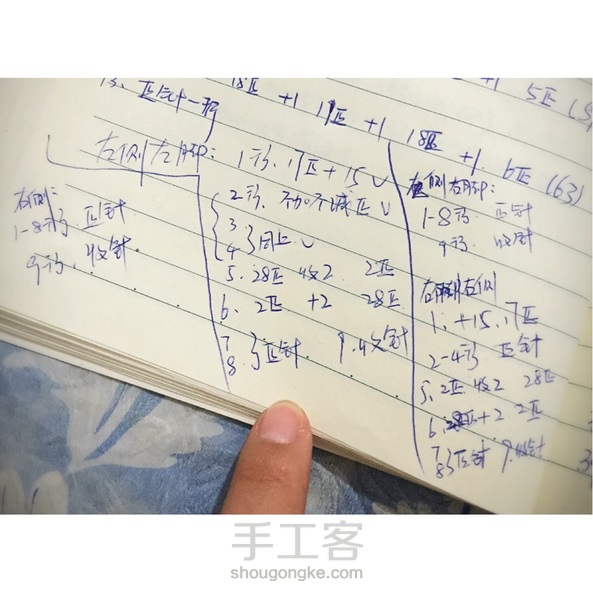 13. 正针一行
18正 +1 17正 +1 18正 +1 6正 (63)
+1 5正
右侧:
1-8行 正针
9行. 收针
左侧左脚: 1行. 17正+15 ✓
2行. 不加不减正 ✓
3
4 }同上 ✓
5. 28正 收2. 2正
6. 2正 +2 28正
7
8. }正针. 9.收针
右侧右脚:
1-8行 正针
9行. 收针
右脚左侧
1. +15. 17正
2-4行 正针
5. 2正. 收2 28正
6. 28正+2 2正
7
8 }正针 9.收针
手工客
shougongke.com